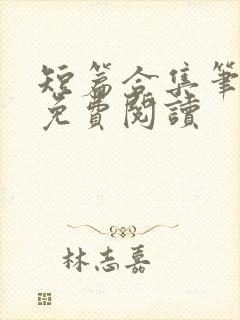 短篇合集筆
免費閱讀
林志嘉